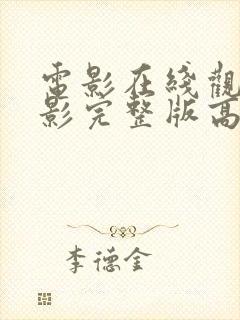 電影在綫觀
影完整版高
李德金